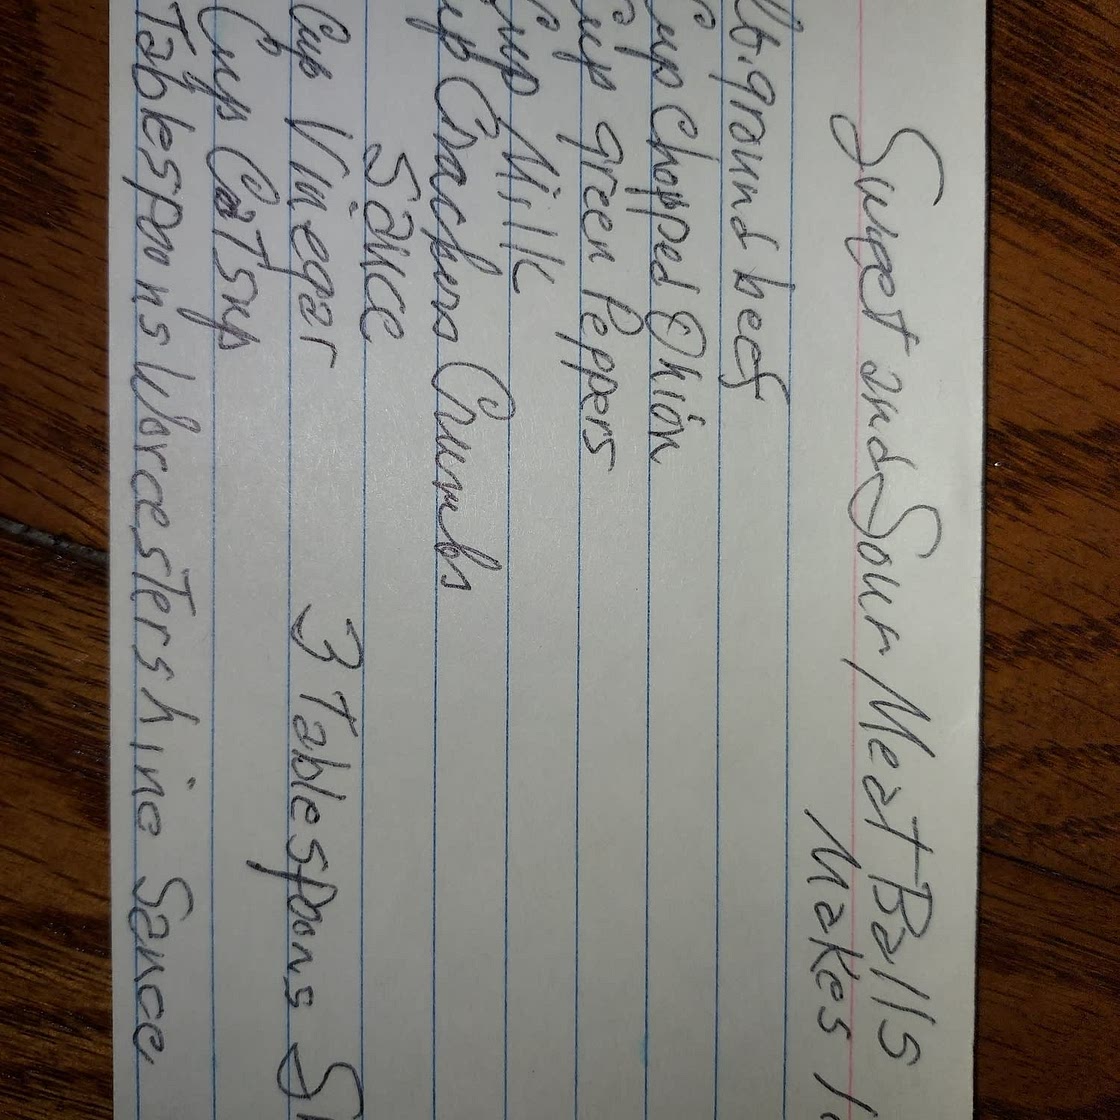 Sweet and Sour Meat Balls
Makes
lb. ground beef
Cup Chopped Onion
Cup green Peppers
Cup Milk
up Crackers Crumbs
Sauce
Cup Vinegar 3 Tablespoons
Cup Catsup
Tablespoons Worcestershire Sauce